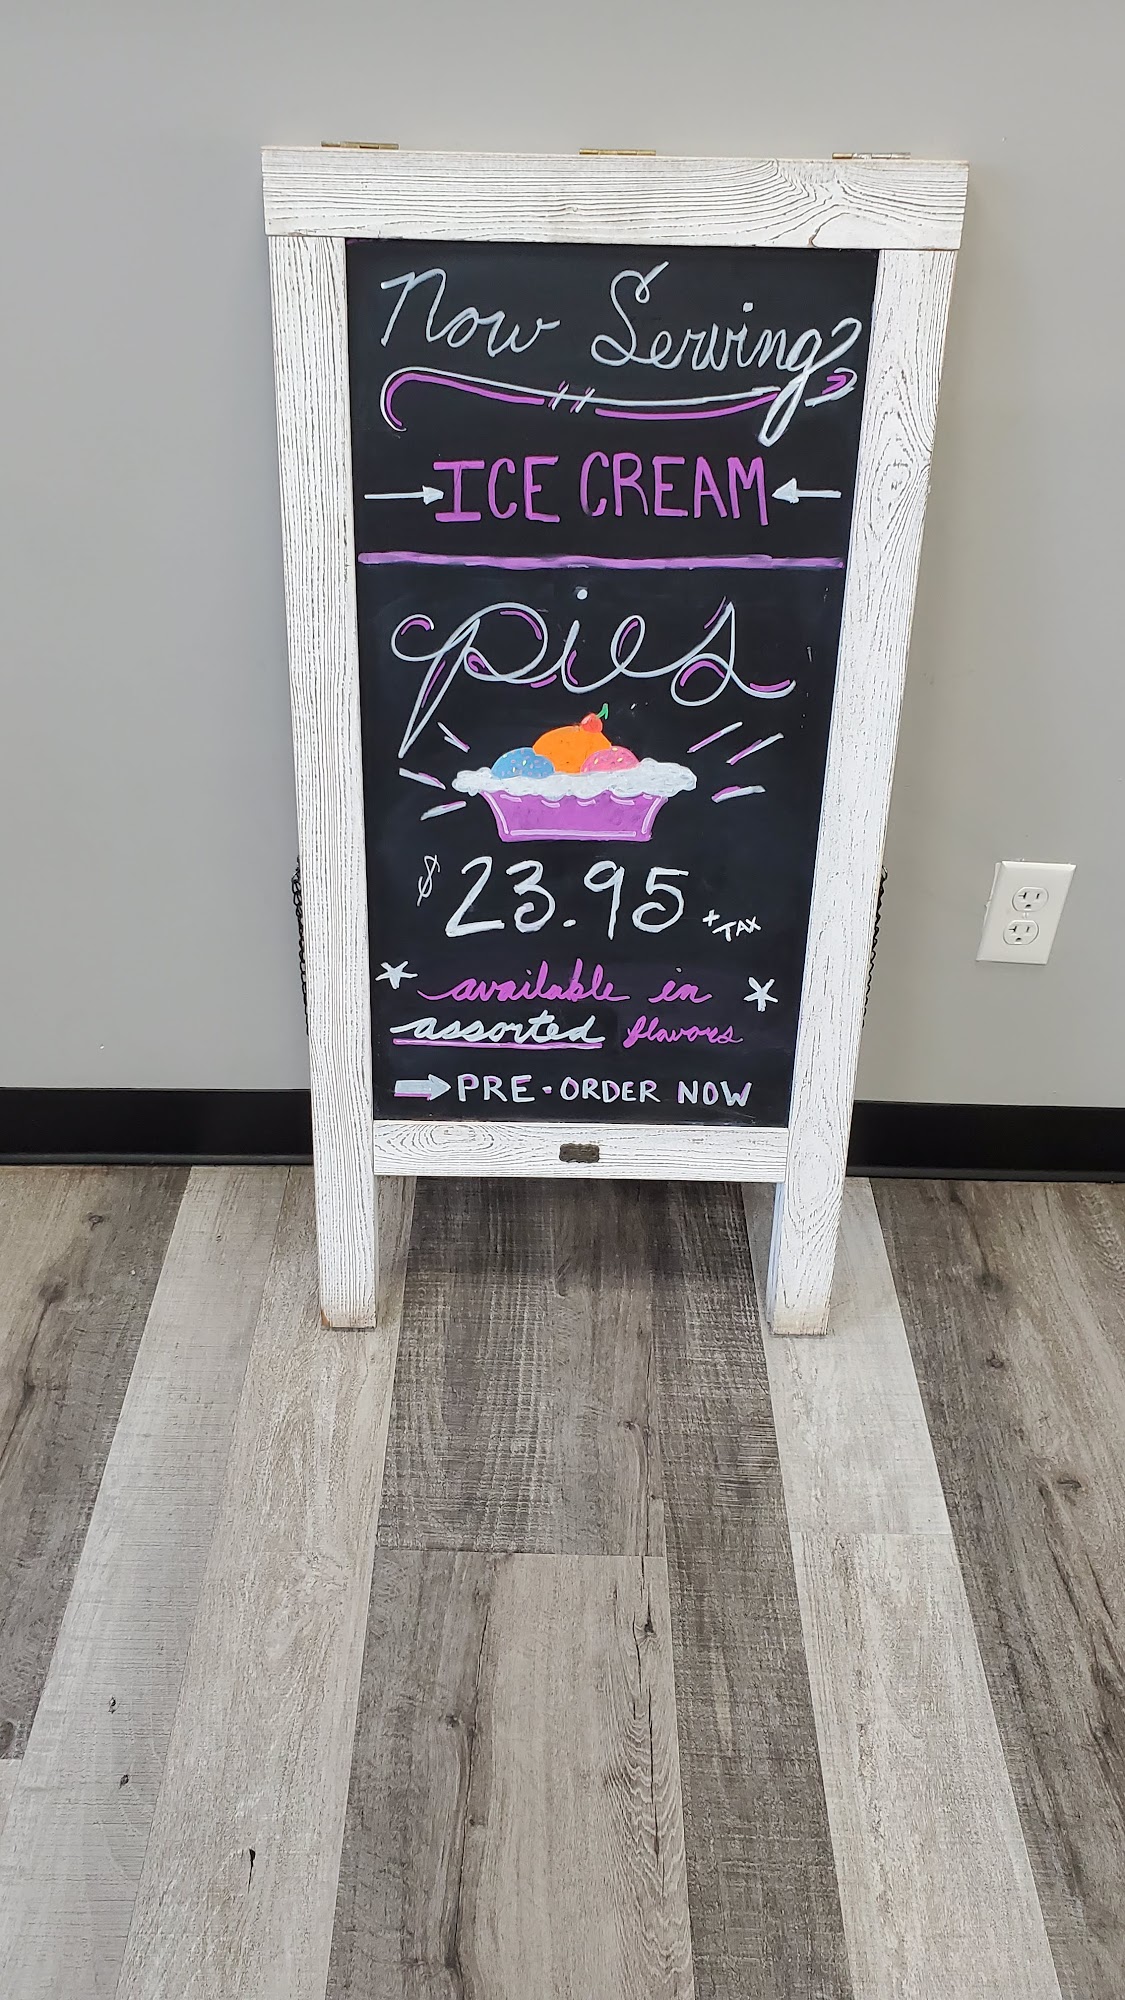 Now Serving
ICE CREAM
pies
$23.95 + TAX
available in
assorted flavors
PRE-ORDER NOW